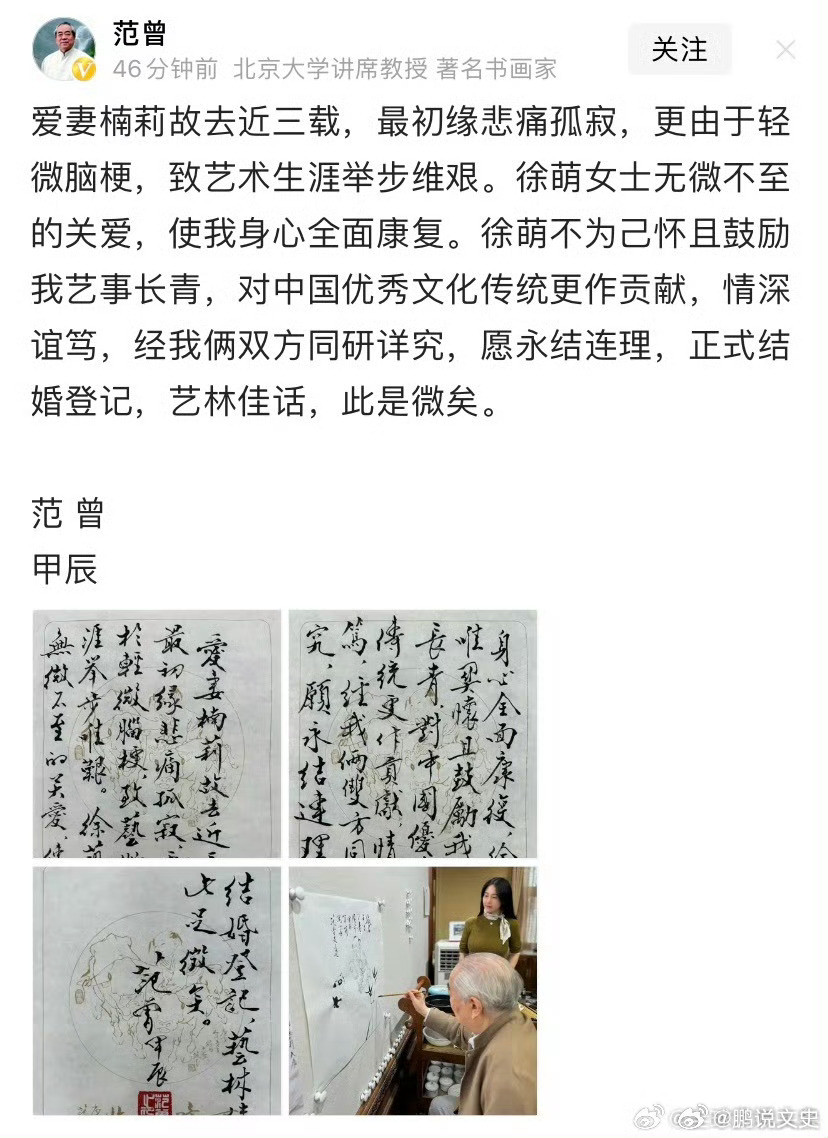 范曾
46分钟前 北京大学讲席教授 著名书画家
关注
爱妻楠莉故去近三载，最初缘悲痛孤寂，更由于轻
微脑梗，致艺术生涯举步维艰。徐萌女士无微不至
的关爱，使我身心全面康复。徐萌不为己怀且鼓励
我艺事长青，对中国优秀文化传统更作贡献，情深
谊笃，经我俩双方同研详究，愿永结连理，正式结
婚登记，艺林佳话，此是微矣。
范 曾
甲辰
愛妻楠莉故去近
最初缘悲痛孤寂
於輕微腦梗，致藝
涯举步唯艱。徐萌
無微不至的关爱，使
身心全面康復，徐
唯契懷且鼓勵我
長青，對中國優
傳統更作貢獻，情
篤，经我俩雙方同
究，願永结連理
结婚登记，藝林
此足徵矣。
范曾甲辰
@鹏说文史